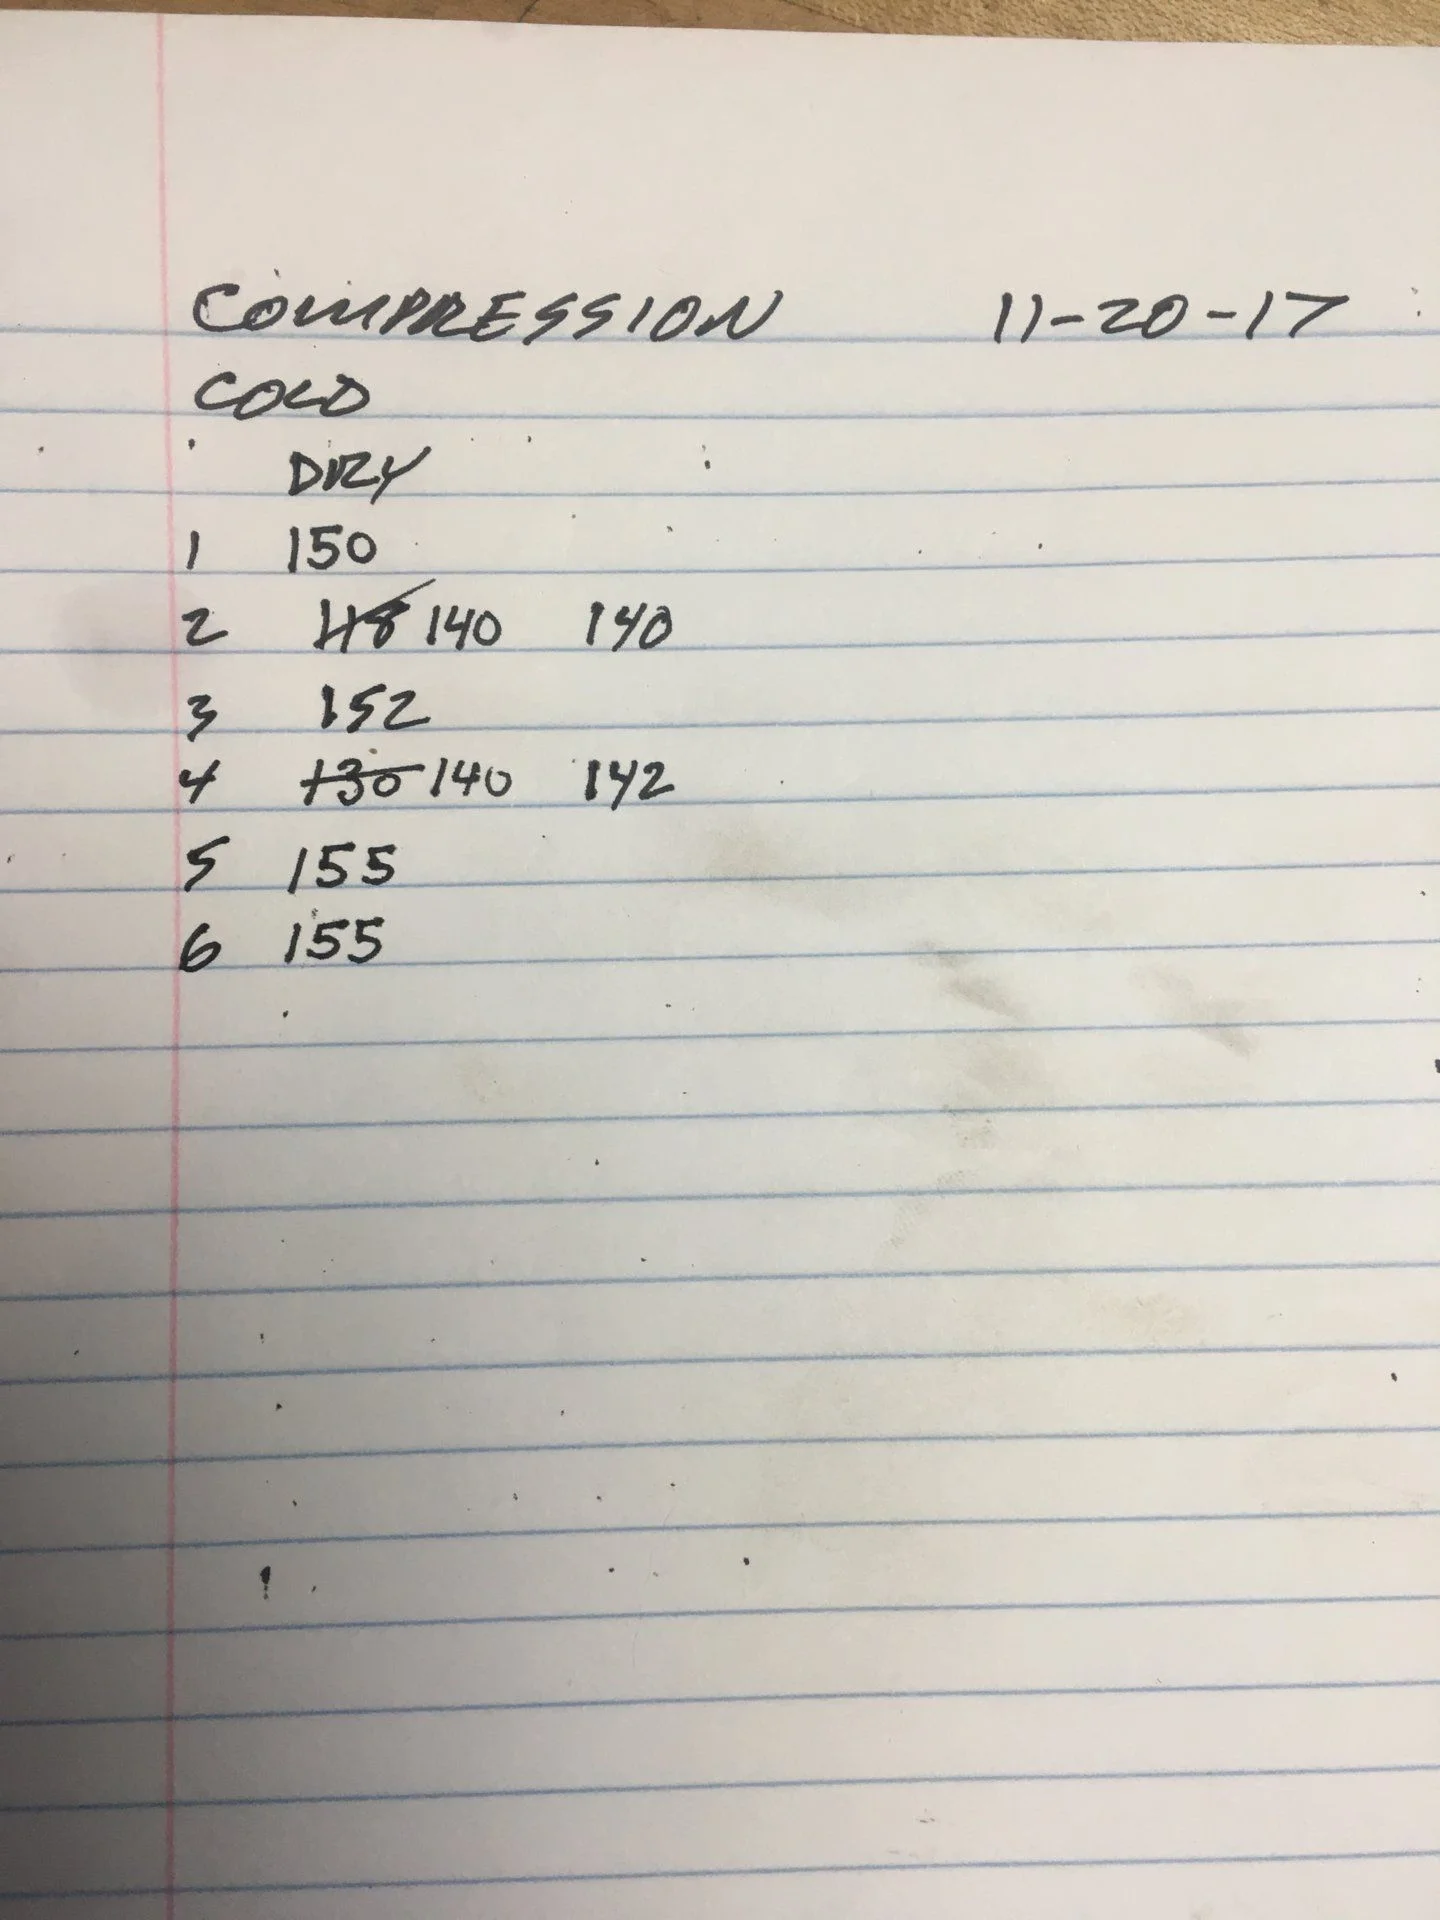 COMPRESSION 11-20-17
COLD
DRY
1 150
2 118 140 140
3 152
4 130 140 142
5 155
6 155